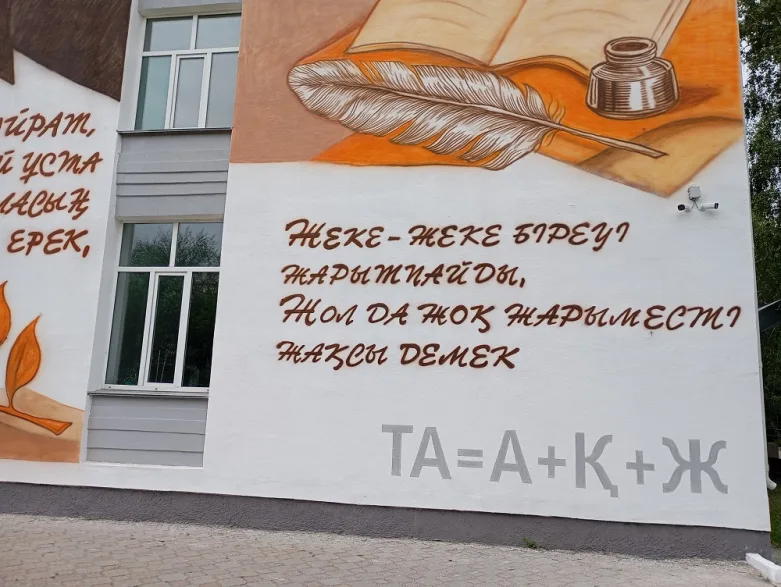 ЙРАТ,
Й ҰСТА
ЛАСЫҢ
ЕРЕК,
ЖЕКЕ-ЖЕКЕ БІРЕУІ
ЖАРЫТПАЙДЫ,
ЖОЛ ДА ЖОҚ ЖАРЫМЕСТІ
ЖАҚСЫ ДЕМЕК
ТА=А+Қ+Ж